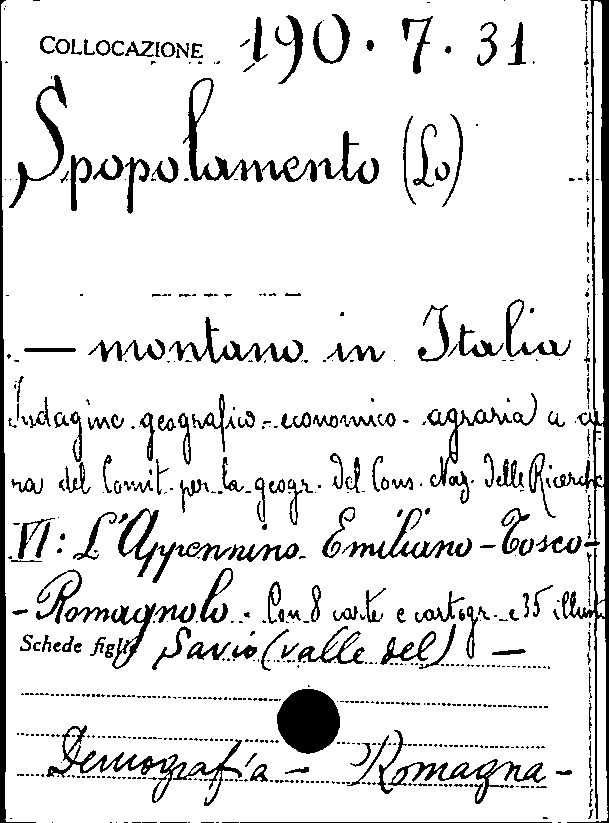 COLLOCAZIONE 190.7.31
Spopolamento (Lo)
— montano in Italia
Indagine geografico-economico-agraria a cu
ra del Comit. per la geogr. del Cons. Naz. delle Ricerche
VI: L'Appennino Emiliano-Tosco-
-Romagnolo. Con 8 carte e cartogr. e 35 illustr
Schede figlie Savio (valle del) —
Demografia — Romagna -